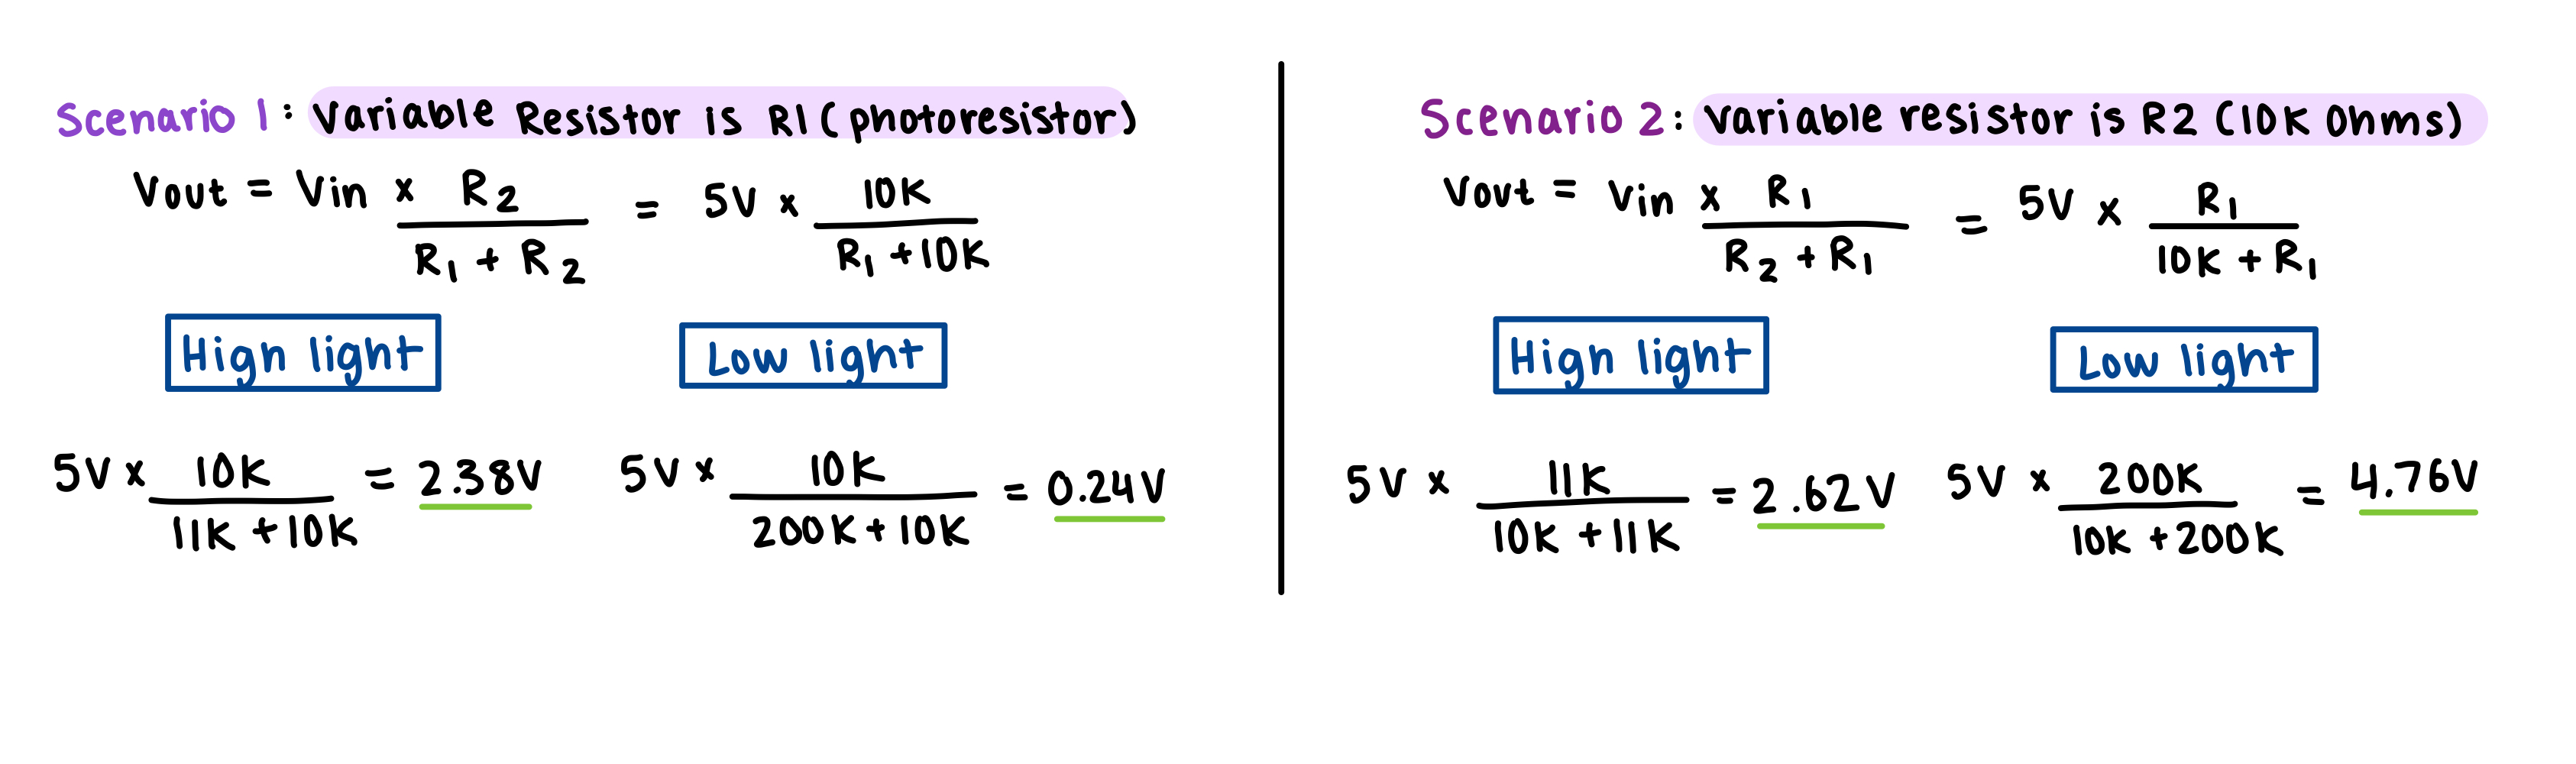 Scenario 1: Variable Resistor is R1 (photoresistor)
Vout = Vin x R2 / R1 + R2 = 5V x 10K / R1 + 10K
High light
Low light
5V x 10K / 11K + 10K = 2.38V
5V x 10K / 200K + 10K = 0.24V
Scenario 2: Variable resistor is R2 (10K Ohms)
Vout = Vin x R1 / R2 + R1 = 5V x R1 / 10K + R1
High light
Low light
5V x 11K / 10K + 11K = 2.62V
5V x 200K / 10K + 200K = 4.76V